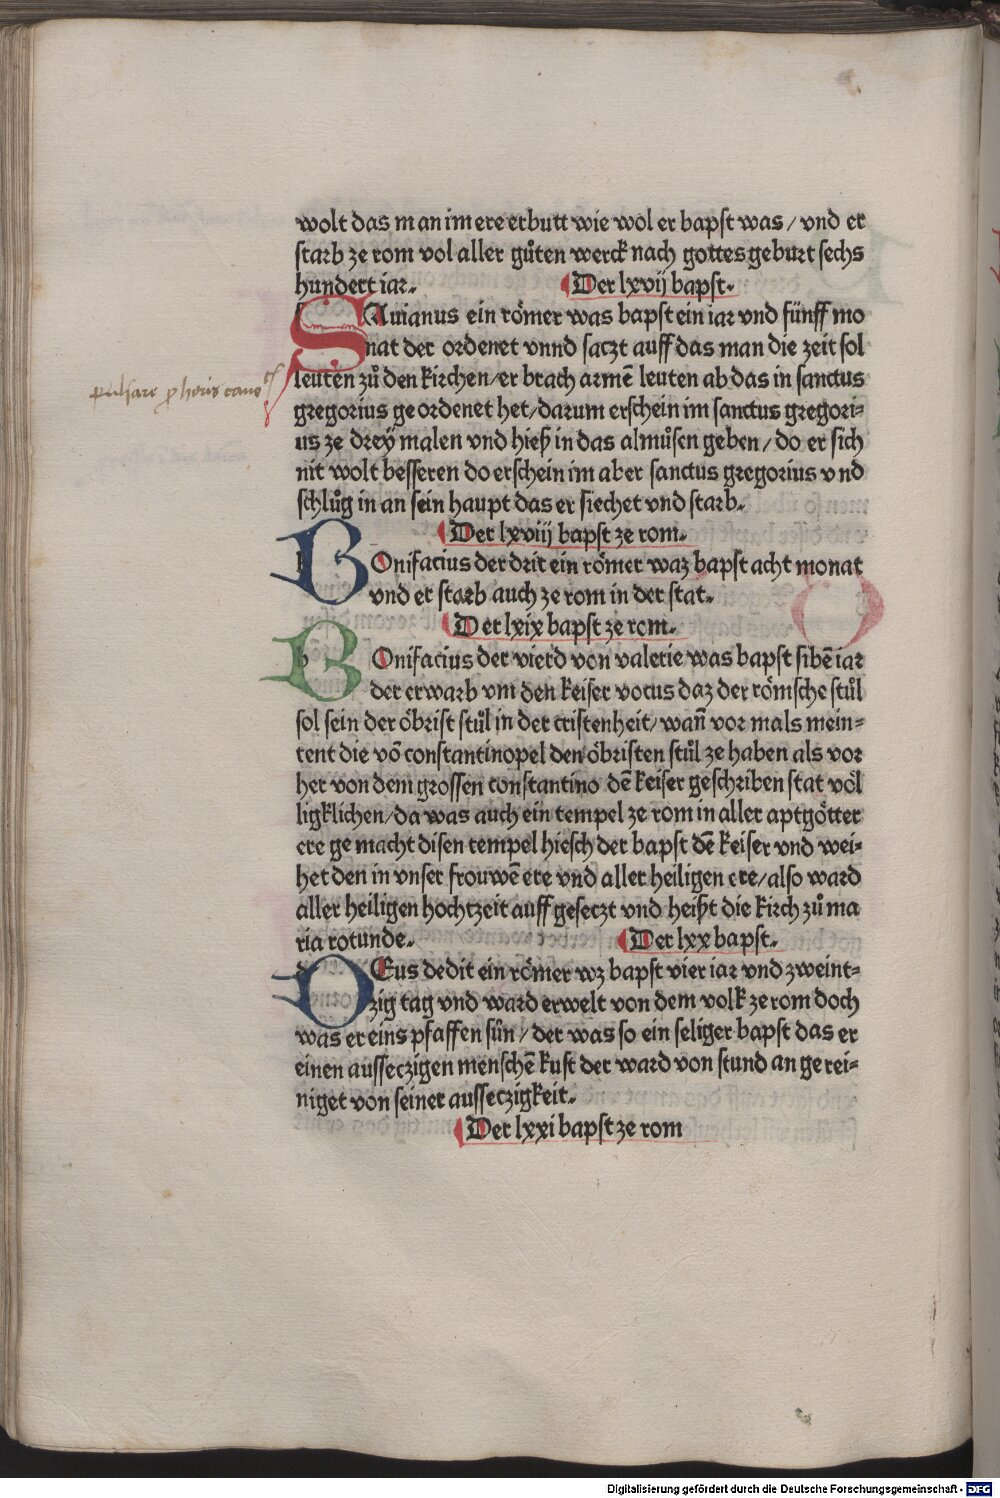 wolt das man im ere erbutt wie wol er bapst was / vnd er
starb ze rom vol aller gůten werck nach gottes geburt sechs
hundert iar. Der lxvij bapst.
SAuianus ein römer was bapst ein iar vnd fünff mo
nat der ordenet vnnd saczt auff das man die zeit sol
leuten zů den kirchen/er brach armē leuten ab das in sanctus
pulsare
gregorius ge ordenet het/darum erschein im sanctus gregori=
us ze dreÿ malen vnd hieß in das almůsen geben/do er sich
nit wolt besseren do erschein im aber sanctus gregorius vnd
schlůg in an sein haupt das er siechet vnd starb.
Der lxviij bapst ze rom.
BOnifacius der drit ein römer waz bapst acht monat
vnd er starb auch ze rom in der stat.
Der lxix bapst ze rom.
BOnifacius der vierd von valerie was bapst sibē iar
der erwarb vm den keiser vocus daz der römsche stůl
sol sein der öbrist stůl in der cristenheit/wañ vor mals mein=
tent die vō constantinopel den öbristen stůl ze haben als vor
her von dem grossen constantino dē keiser geschriben stat völ
ligklichen/da was auch ein tempel ze rom in aller aptgötter
ere ge macht disen tempel hiesch der bapst dē keiser vnd wei=
het den in vnser frouwē ere vnd aller heiligen ere/also ward
aller heiligen hochtzeit auff geseczt vnd heißt die kirch zů ma
ria rotunde. Der lxx bapst.
DEus dedit ein römer wz bapst vier iar vnd zweint=
zig tag vnd ward erwelt von dem volk ze rom doch
was er eins pfaffen sůn/der was so ein seliger bapst das er
einen ausseczigen menschē kust der ward von stund an ge rei=
niget von seiner ausseczigkeit.
Der lxxi bapst ze rom
Digitalisierung gefördert durch die Deutsche Forschungsgemeinschaft - DFG